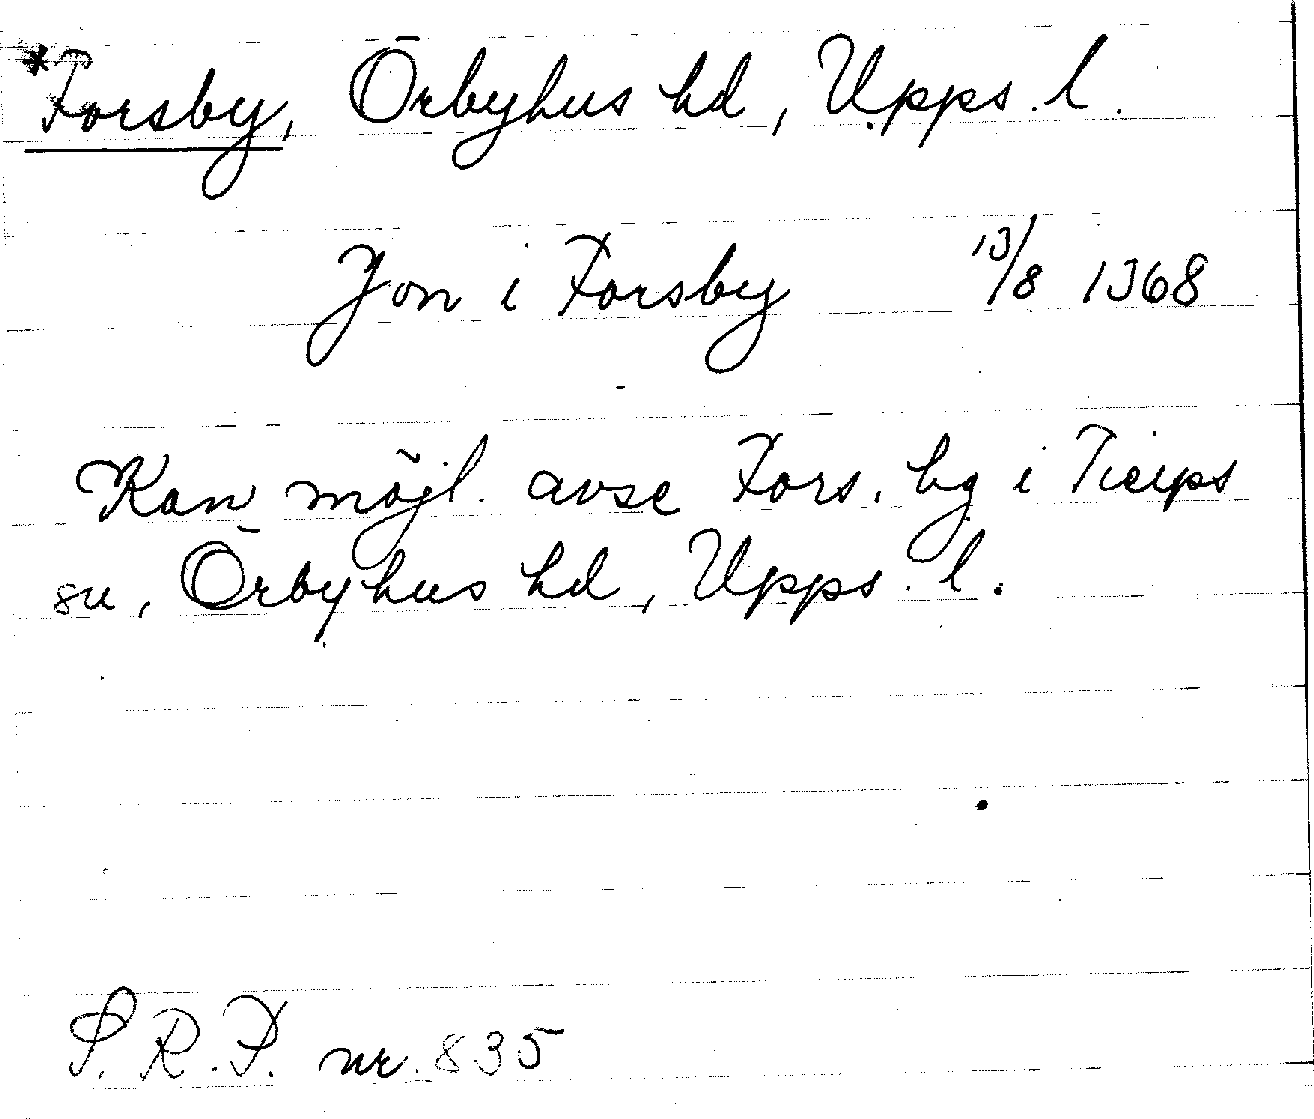 *Forsby, Örbyhus hd, Upps. l.
Jon i Forsby 13/8 1368
Kan möjl. avse Fors, by i Tierps
sn, Örbyhus hd, Upps. l.
S.R.P. nr. 835